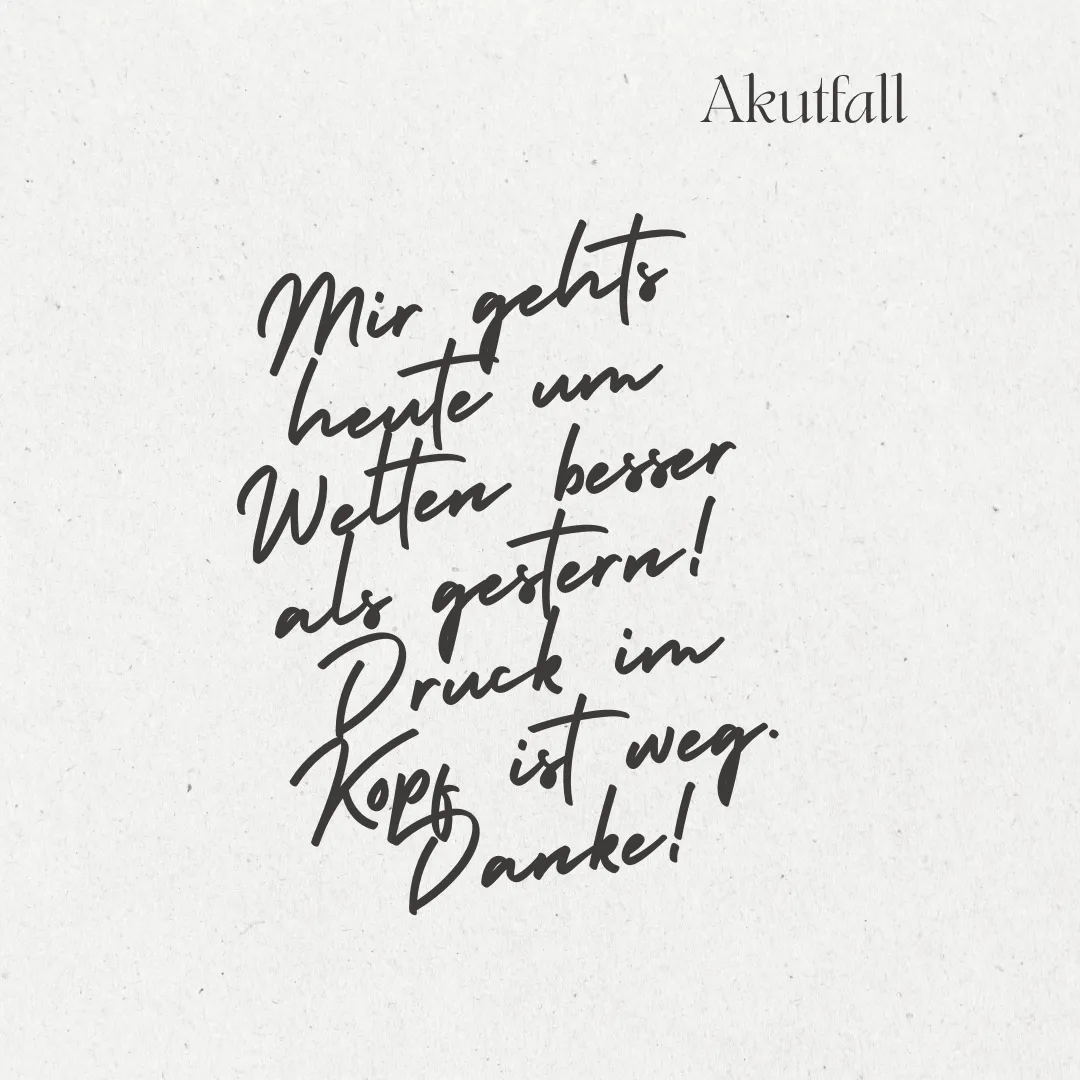 Akutfall
Mir gehts
heute um
Welten besser
als gestern!
Druck im
Kopf ist weg.
Danke!